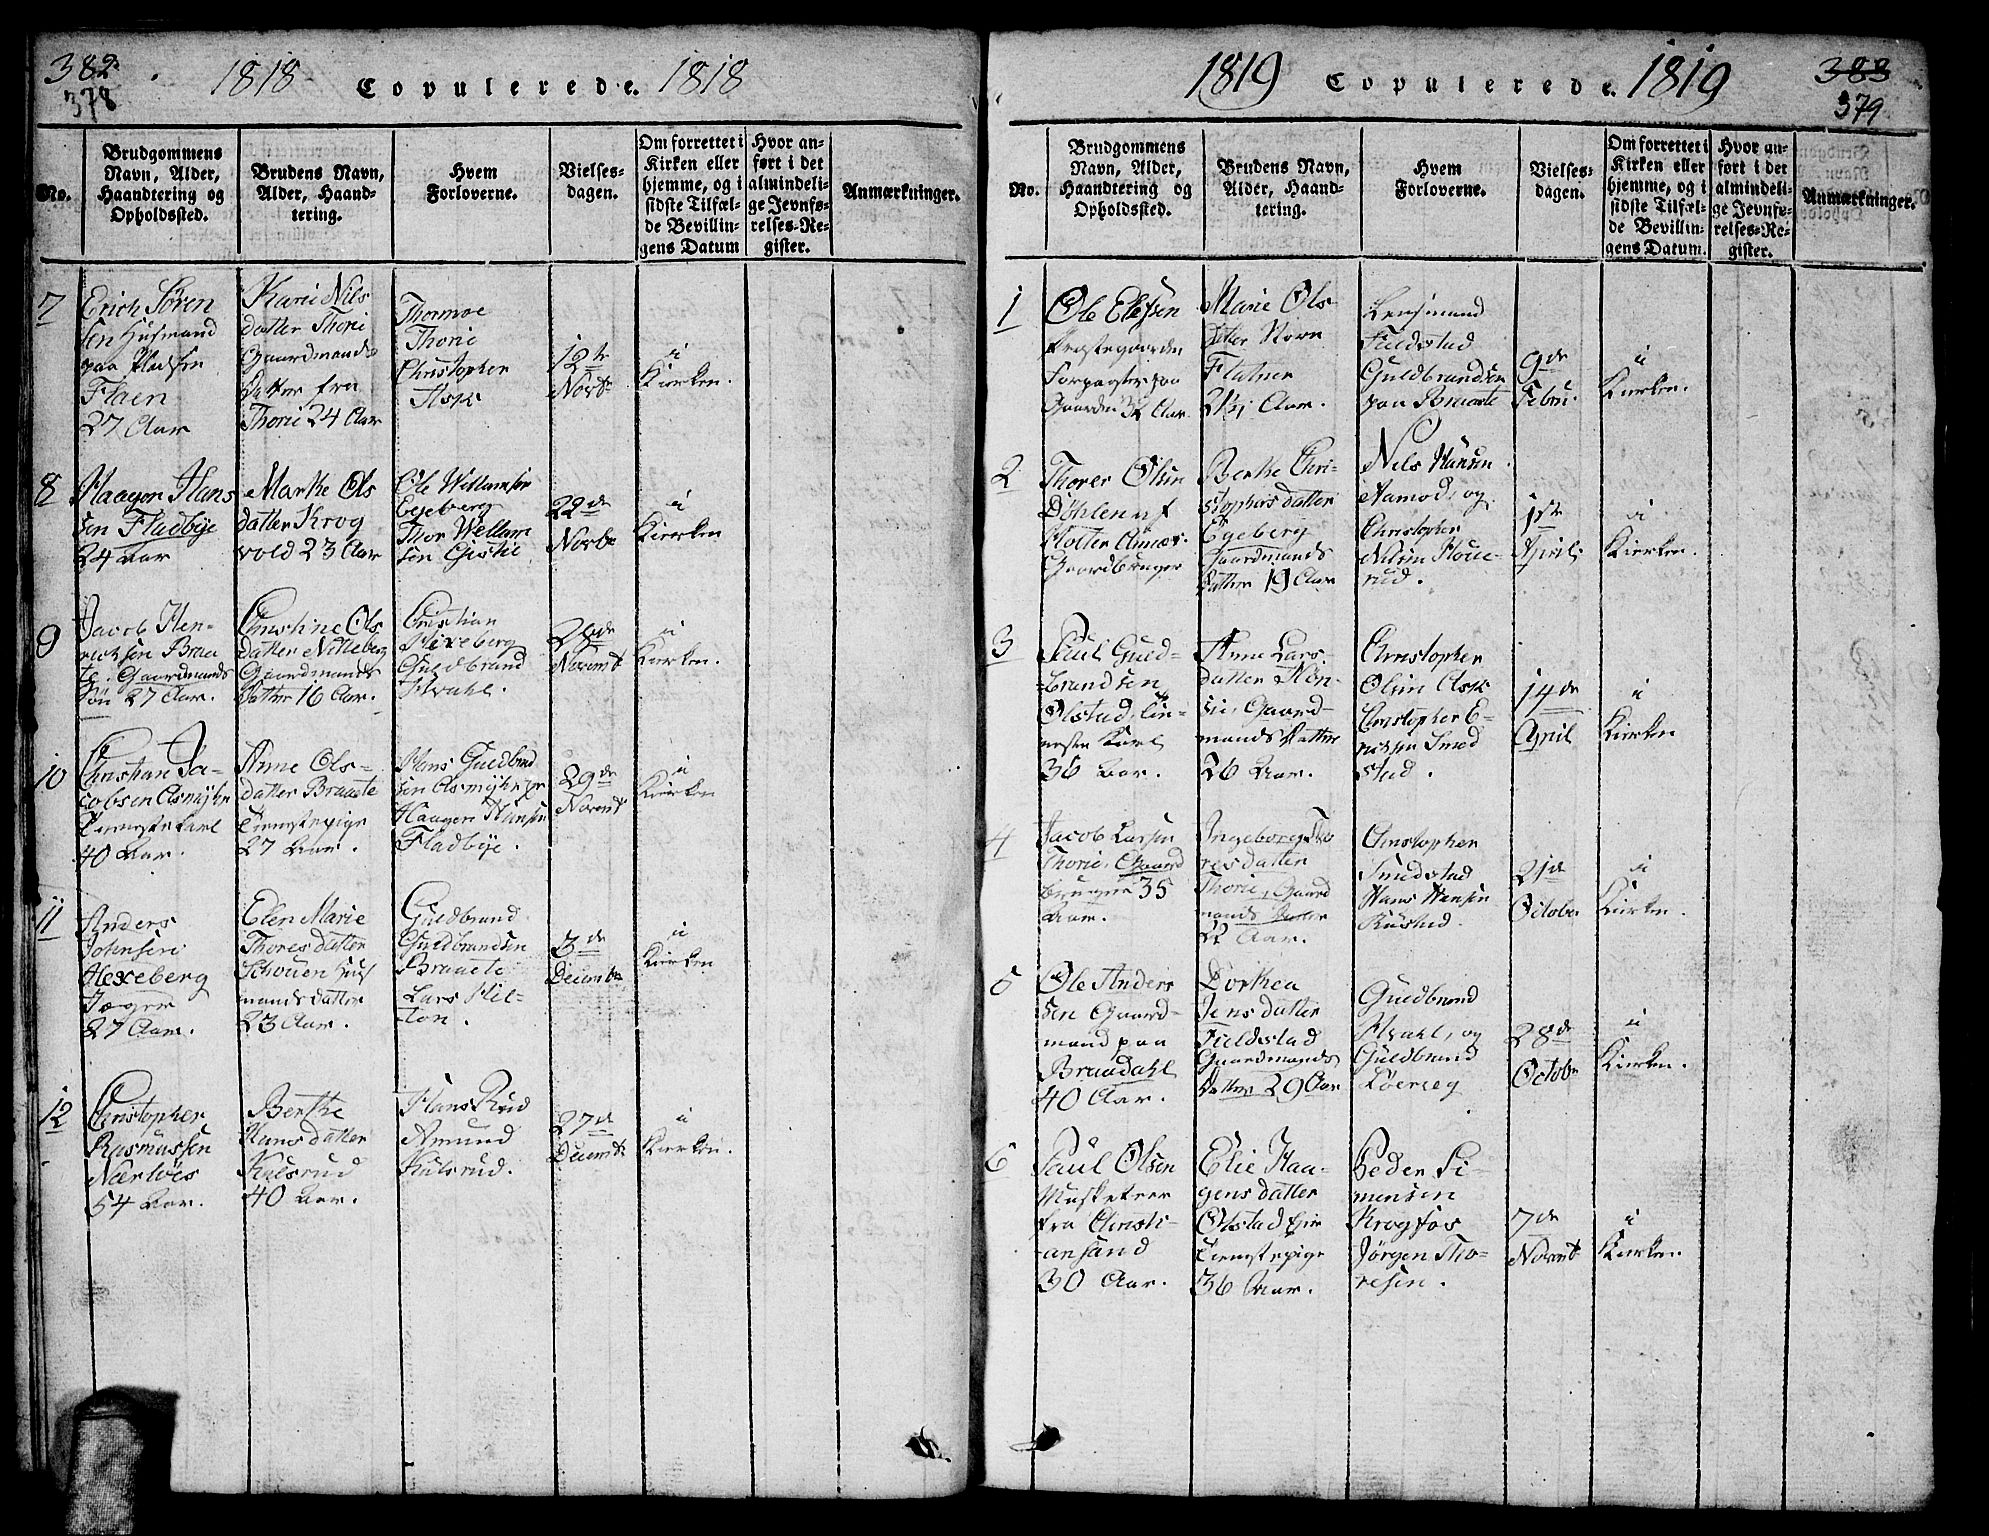 382
378
1818 Copulerede. 1818
No.
Brudgommens
Navn, Alder,
Haandtering og
Opholdssted.
Brudens Navn,
Alder, Haand-
tering.
Hvem
Forloverne.
Vielses-
dagen.
Om forrettet i
Kirken eller
hjemme, og i
sidste Tilfæl-
de Bevillin-
gens Datum
Hvor an-
ført i det
almindeli-
ge Jevnfø-
relses-Re-
gister.
Anmærkninger.
7
Erich Sören
sen Husmand
paa Pladsen
Flaen
27 Aar
Karie Nils
datter Thorie
Gaardmands
Datter fra
Thorie 24 Aar
Thormoe
Thorie
Christopher
Ask
12te
Novbr
i
Kierken.
8
Haagen Hans
sen Fladbye
24 Aar
Marthe Ols
datter Krog
vold 23 Aar
Ole Willumsen
Egeberg
Thor Wellum
sen
22de
Novbr
i
Kierken
9
Jacob Hen-
richsen Braa
te. Gaardmands
Søn 27 Aar.
Christine Ols
datter Nitteberg
Gaardmands
Datter 16 Aar.
Christian
Hexeberg
Guldbrand
Hvahl.
28de
Novembr
i
Kierken.
10
Christian Ja-
cobsen Asmyhr
Tienestekarl
40 Aar.
Anne Ols-
datter Braaete
Tienestepige
27 Aar.
Hans Guldbrand
sen Asmyhr
Haagen Hansen
Fladbye.
29de
Novembr
i
Kierken
11
Anders
Johnsen
Hexeberg
Jæger
27 Aar.
Elen Marie
Thoresdatter
Schouen Huus
mandsdatter
23 Aar.
Guldbrand
Guldbrandsen
Braaete
Lars Hel-
ton.
3de
Decembr
i
Kierken
12
Christopher
Rasmussen
Nærløes
54 Aar.
Berthe
Hansdatter
Kulsrud
40 Aar.
Hans Rud
Amund
Kulsrud.
27de
Decembr
i
Kierken.
1819 Copulerede. 1819
383
379
No.
Brudgommens
Navn, Alder,
Haandtering og
Opholdssted.
Brudens Navn,
Alder, Haand-
tering.
Hvem
Forloverne.
Vielses-
dagen.
Om forrettet i
Kirken eller
hjemme, og i
sidste Tilfæl-
de Bevillin-
gens Datum.
Hvor an-
ført i det
almindeli-
ge Jevnfø-
relses-Re-
gister.
Anmærkninger.
1
Ole Elefsen
Præstegaarden
Forpagter paa
Gaarden 32 Aar.
Marie Ols-
datter
Flatner
21½ Aar.
Lensmand
Fieldstad
Guldbrandsen
paa Braaete
9de
Febru.
i
Kierken.
2
Thorer Olsen
Döhlen af
Holter Annex.
Gaardbruger
Berthe Chri-
stophersdatter
Egeberg
Gaardmands
datter 19 Aar
Nils Hansen
Aamod, og
Christopher
Nilsen Houe-
rud.
1ste
April.
i
Kierken.
3
Paul Guld-
brandsen
Olstad, tie-
neste Karl
36 Aar.
Anne Lars-
datter Kon-
sie, Gaard-
mands Datter
26 Aar.
Christopher
Olsen Ask
Christopher E-
richsen Smed
stad.
14de
April
i
Kierken
4
Jacob Larsen
Thorie, Gaard
bruger 35
Aar.
Ingeborg Tho
resdatter
Thorie, Gaard
mands datter
22 Aar.
Christopher
Smedstad
Hans Hansen
Rustad.
21de
Octobr
i
Kierken.
5
Ole Anders
sen Gaard-
mand paa
Braadahl
40 Aar.
Dorthea
Jensdatter
Fieldstad
Gaardmands
datter 29 Aar
Guldbrand
Hvahl, og
Guldbrand
Löereeg
28de
Octobr
i
Kierken.
6
Paul Olsen
Musketeer
fra Christi-
ansand
30 Aar.
Elie Haa-
gensdatter
Olstad Eie
Tienestepige
36 Aar.
Peder Si-
mensen
Krogfos
Jörgen Tho-
resen.
7de
Novembr
i
Kierken.